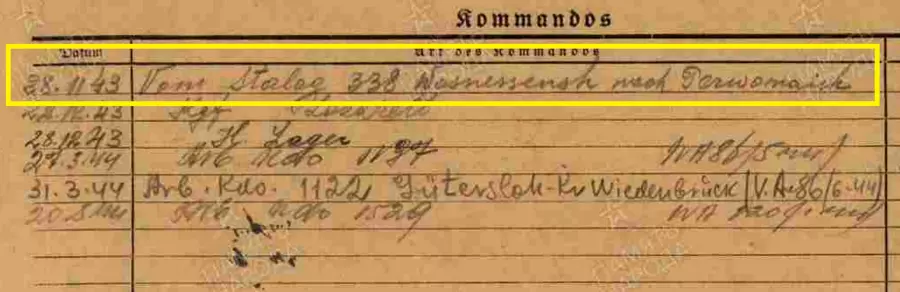 Kommandos
Datum Art des Kommandos
28.11.43 Vom Stalag 338 Wosnessensk nach Perwomaisk
28.12.43 Kgf Lazarett
28.12.43 H Lager
27.3.44 Arb Kdo 1197 VA86/5
31.3.44 Arb. Kdo. 1122 Gütersloh-Kr Wiedenbrück (V.A.86/6-44)
Arb Kdo 1529 VA